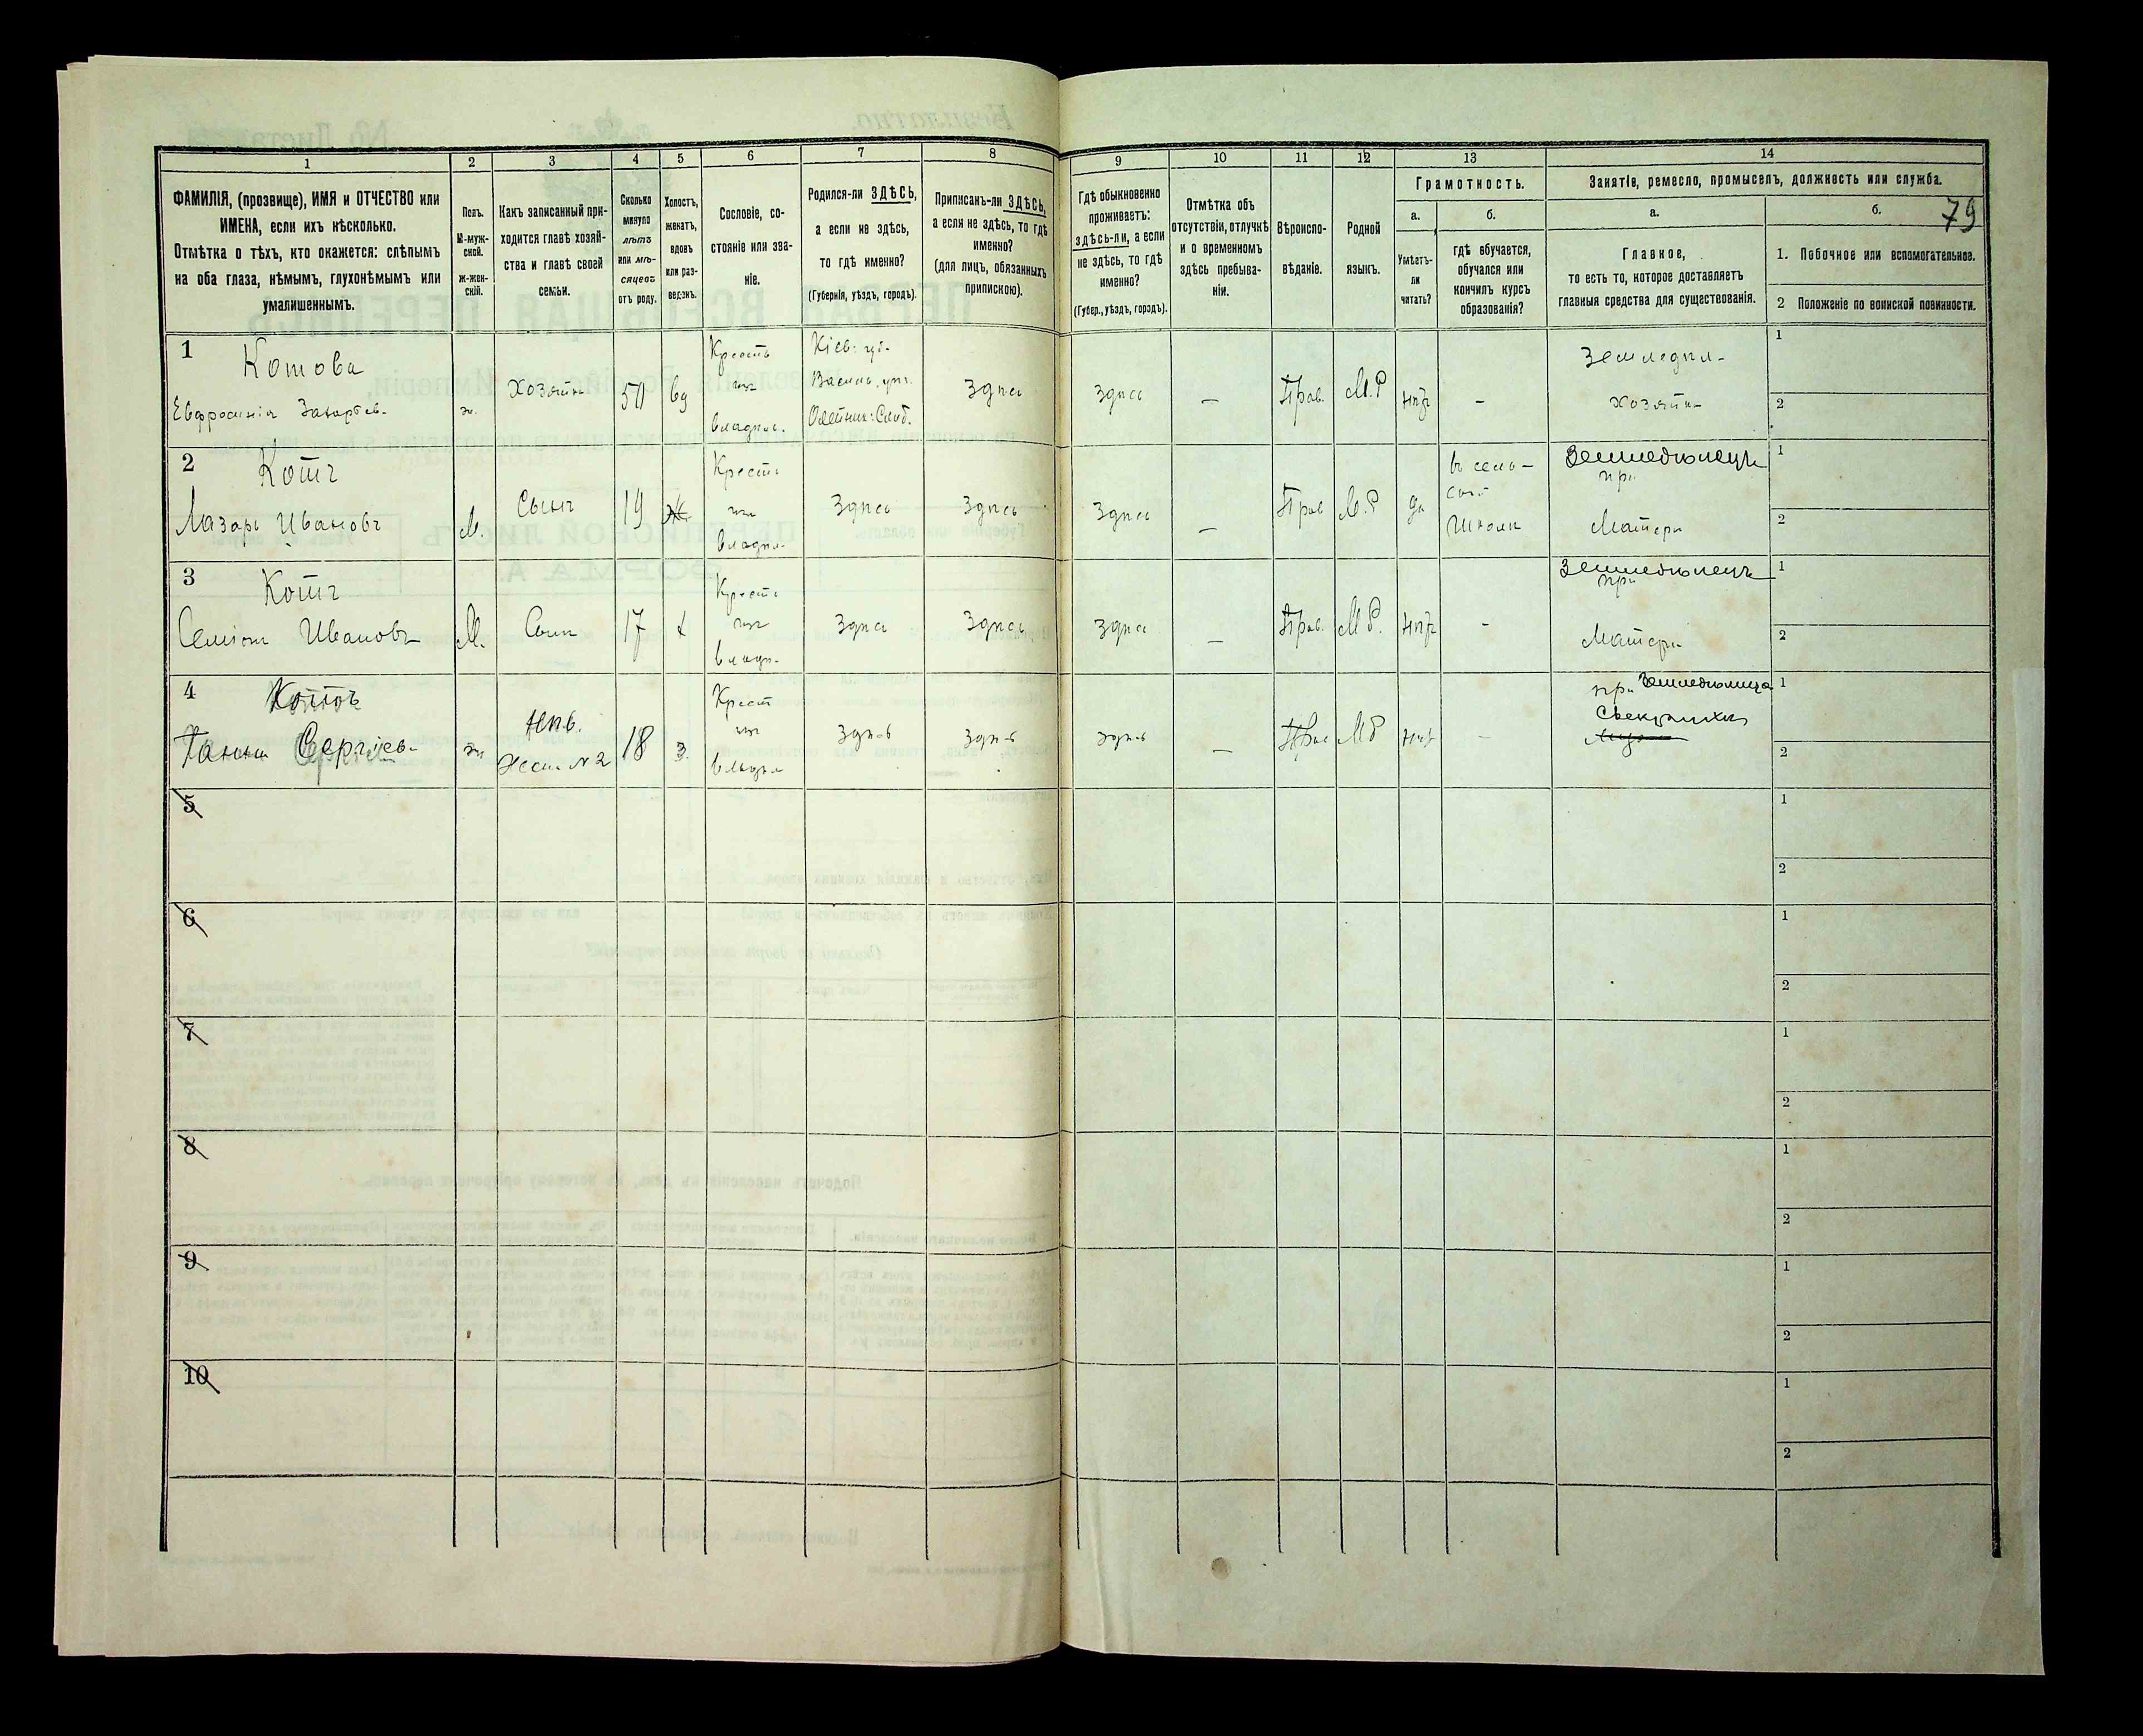 1
2
3
4
5
6
7
8
9
10
11
12
13
14
ФАМИЛІЯ, (прозвище), ИМЯ и ОТЧЕСТВО или
ИМЕНА, если ихъ нѣсколько.
Отмѣтка о тѣхъ, кто окажется: слѣпымъ
на оба глаза, нѣмымъ, глухонѣмымъ или
умалишеннымъ.
Полъ.
М-муж-
ской.
ж-жен-
скій.
Какъ записанный при-
ходится главѣ хозяй-
ства и главѣ своей
семьи.
Сколько
минуло
лѣтъ
или мѣ-
сяцевъ
отъ роду.
Холостъ,
женатъ,
вдовъ
или раз-
веденъ.
Сословіе, со-
стояніе или зва-
ніе.
Родился-ли ЗДѢСЬ,
а если не здѣсь,
то гдѣ именно?
(Губернія, уѣздъ, городъ).
Приписанъ-ли ЗДѢСЬ,
а если не здѣсь, то гдѣ
именно?
(для лицъ, обязанныхъ
припискою).
Гдѣ обыкновенно
проживаетъ:
здѣсь-ли, а если
не здѣсь, то гдѣ
именно?
(Губер., уѣздъ, городъ).
Отмѣтка объ
отсутствіи, отлучкѣ
и о временномъ
здѣсь пребыва-
ніи.
Вѣроиспо-
вѣданіе.
Родной
языкъ.
Грамотность.
а.
б.
Умѣетъ-
ли
читать?
гдѣ обучается,
обучался или
кончилъ курсъ
образованія?
Занятіе, ремесло, промыселъ, должность или служба.
а.
б.
79
Главное,
то есть то, которое доставляетъ
главныя средства для существованія.
1. Побочное или вспомогательное.
2 Положеніе по воинской повинности.
1
Котова
Евфросинія Захарьев-
ж.
Хозяйка
50
вд
Кресть
влад.
Кіев: губ.
Здѣсь
Здѣсь
—
Прав.
М.Р
-
Хозяйка
1
2
2
Котъ
Лазарь Ивановъ
М.
Сынъ
19
Кресть
Здѣсь
Здѣсь
Здѣсь
—
Прав
М.Р
да
въ сель-
ской
Школѣ
Земледѣлецъ
при
Матери
1
2
3
Котъ
Ивановъ
М.
Сынъ
17
х
Здѣсь
Здѣсь
Здѣсь
—
Прав.
М.Р.
-
Земледѣлецъ
при
Матери
1
2
4
Сергіев-
ж
Нев.
Жена №2
18
з.
Крест
Здѣсь
Здѣсь
Здѣсь
—
МР
-
при Земледѣлица
1
2
5
1
2
6
1
2
7
1
2
8
1
2
9
1
2
10
1
2